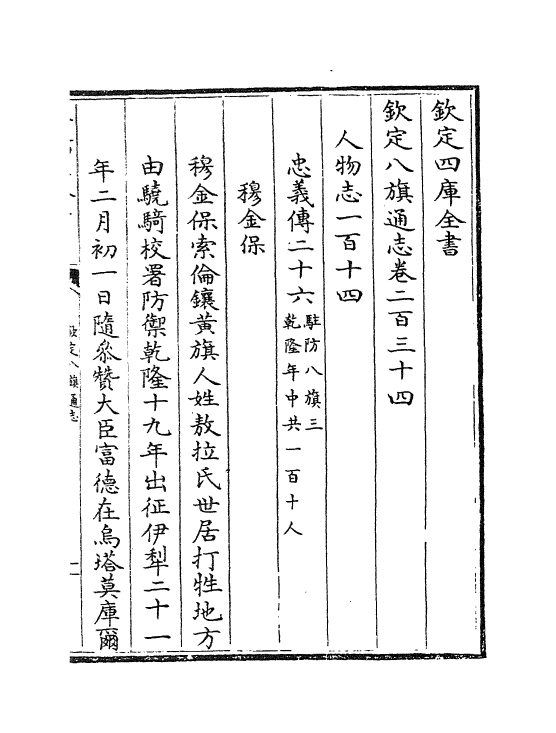 欽定四庫全書
欽定八旗通志卷二百三十四
人物志一百十四
忠義傳二十六駐防八旗三
乾隆年中共一百十人
穆金保
穆金保索倫鑲黃旗人姓敖拉氏世居打牲地方
由驍騎校署防禦乾隆十九年出征伊犁二十一
年二月初一日隨叅贊大臣富德在烏塔莫庫爾
欽定八旗通志